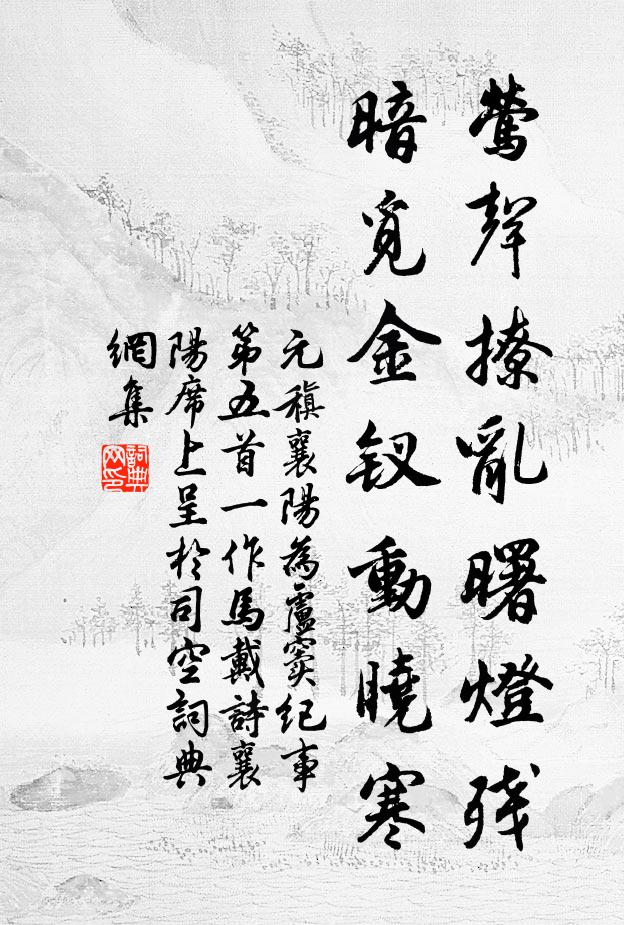 莺聲撩亂曙燈残
暗覓金釵動曉寒
元稹襄陽為盧竇紀事
第五首一作馬戴詩襄
陽席上呈於司空詞典
網集
詞典网印